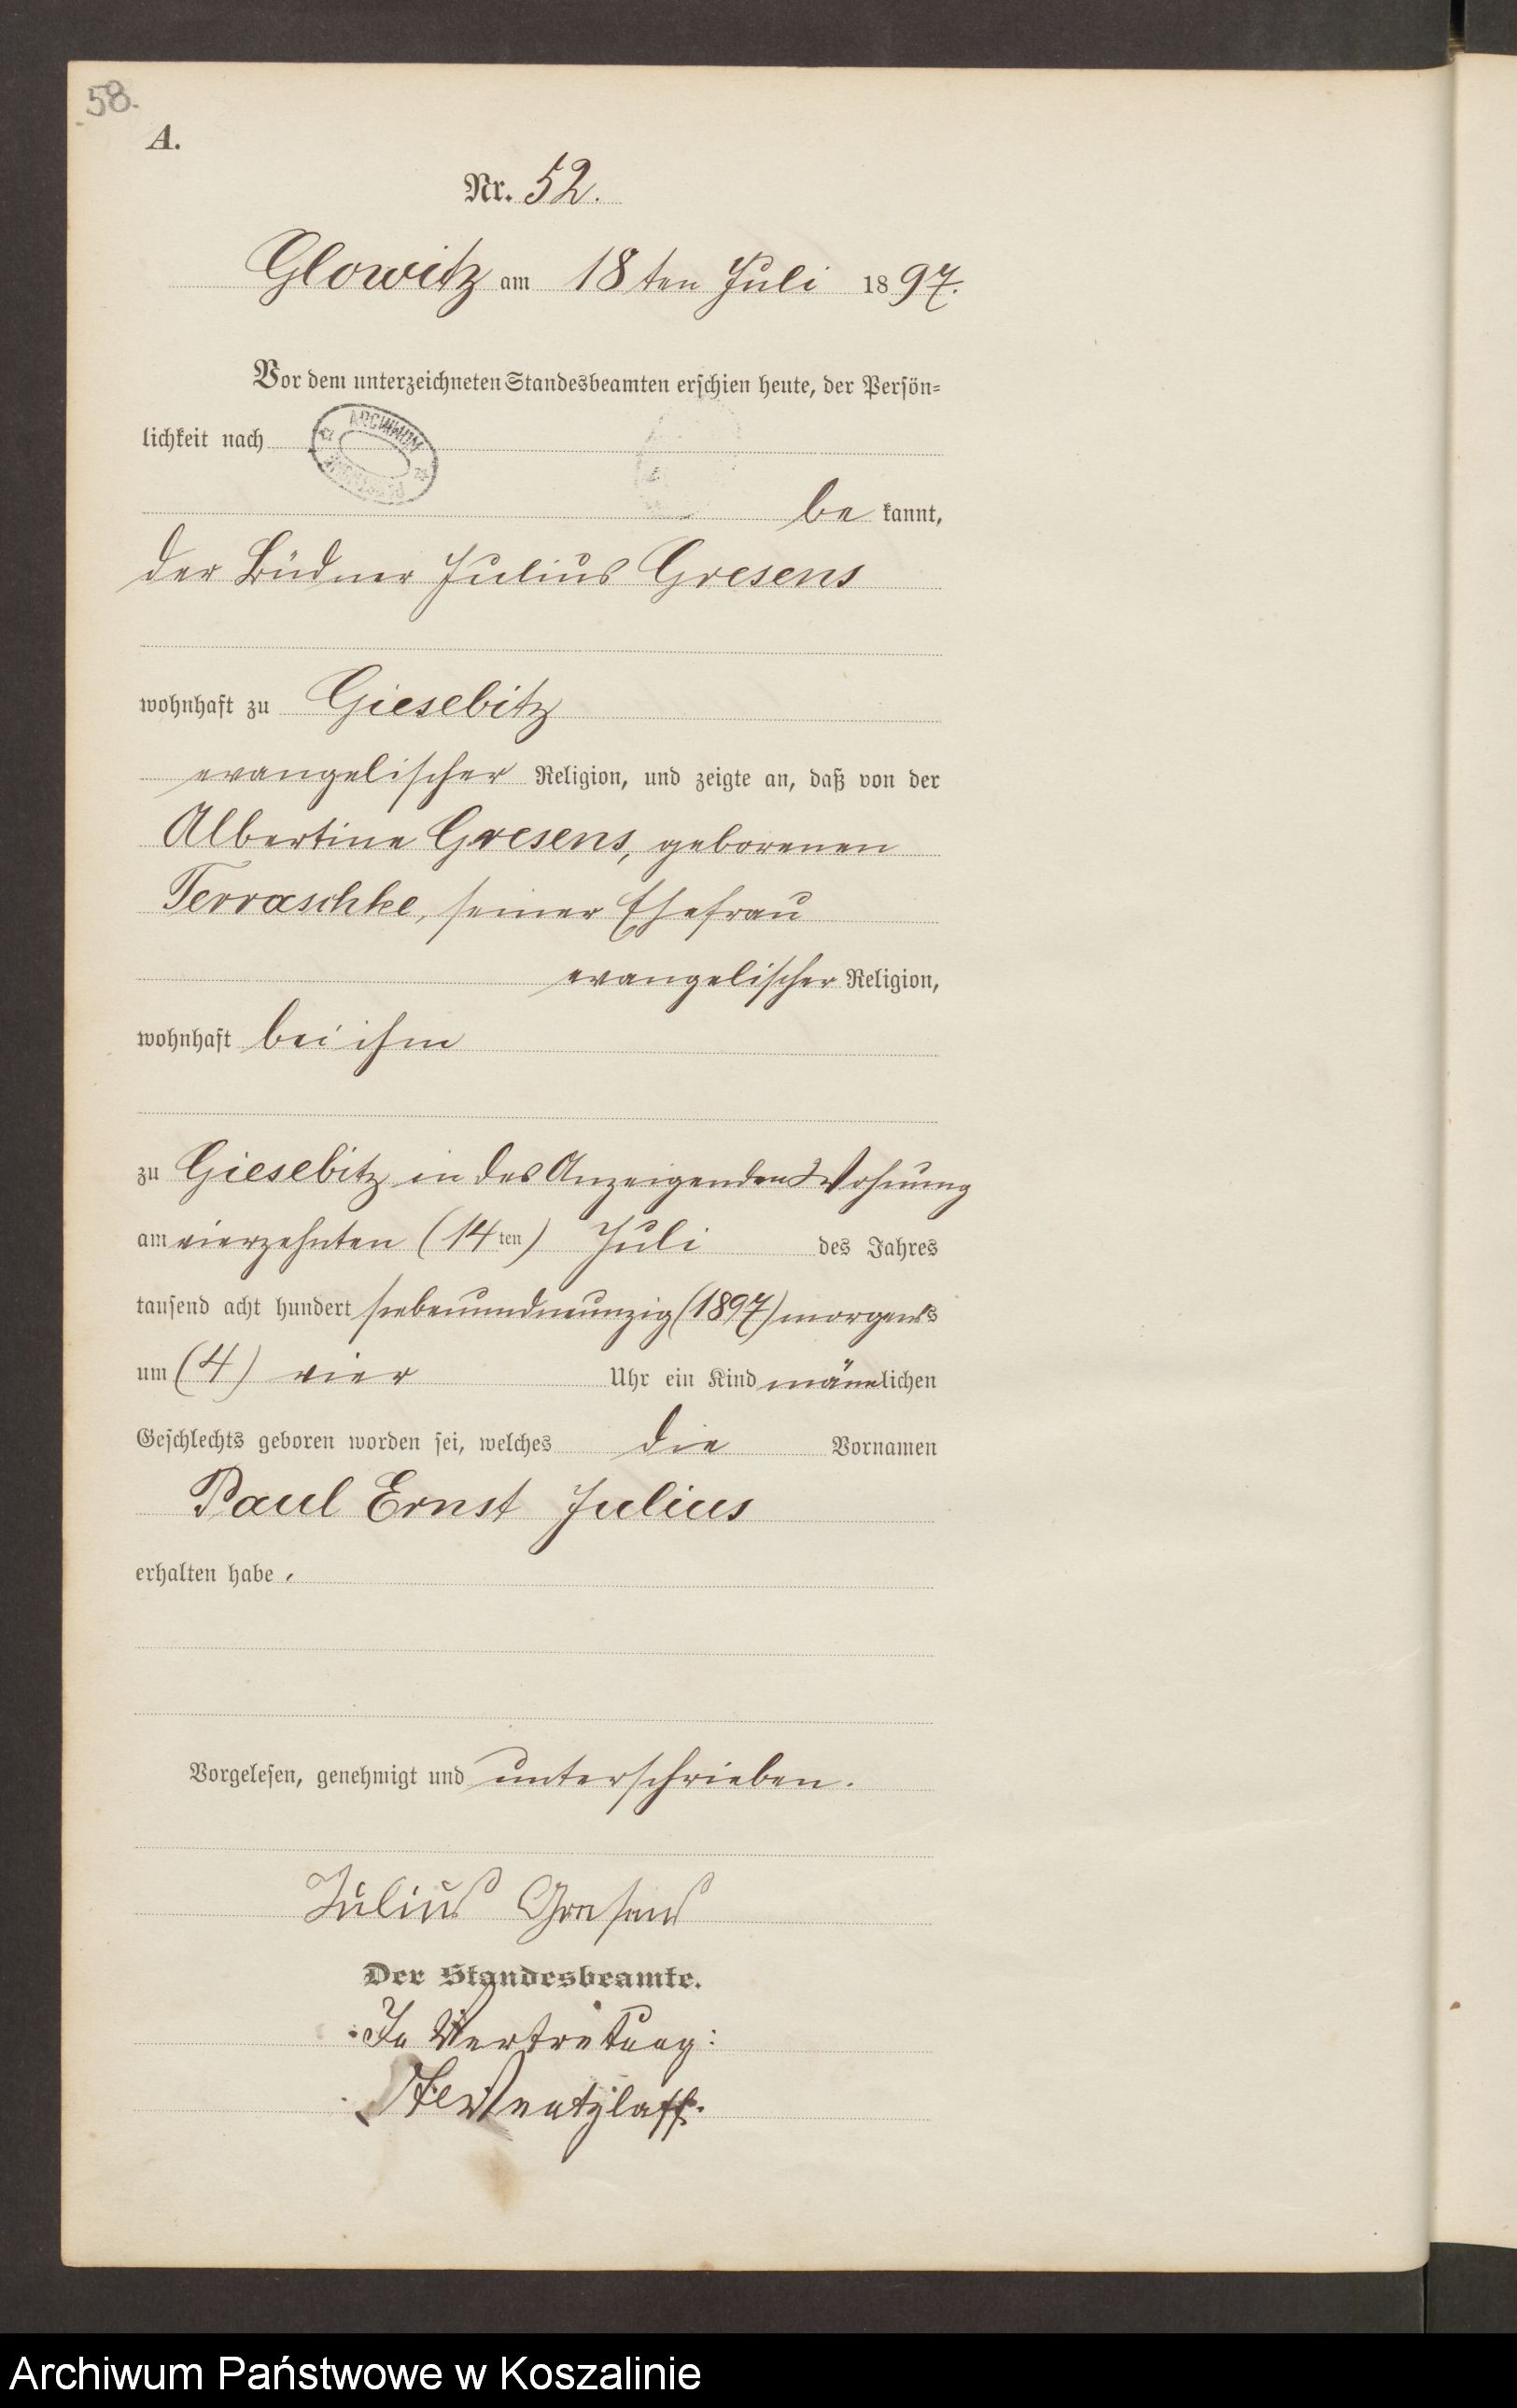 58.
A.
Nr. 52.
Glowitz am 18ten Juli 1897.
Vor dem unterzeichneten Standesbeamten erschien heute, der Persön=
lichkeit nach
ARCHIWUM
be kannt,
der Büdner Julius Gresens
wohnhaft zu Giesebitz
evangelischer Religion, und zeigte an, daß von der
Albertine Gresens, geborenen
Terraschke, seiner Ehefrau
evangelischer Religion,
wohnhaft bei ihm
zu Giesebitz in des Anzeigenden Wohnung
am vierzehnten (14ten) Juli des Jahres
tausend acht hundert siebenundneunzig (1897) morgens
um (4) vier Uhr ein Kind männlichen
Geschlechts geboren worden sei, welches die Vornamen
Paul Ernst Julius
erhalten habe.
Vorgelesen, genehmigt und unterschrieben.
Julius Gresens
Der Standesbeamte.
In Vertretung:
Wentzlaff.
Archiwum Państwowe w Koszalinie